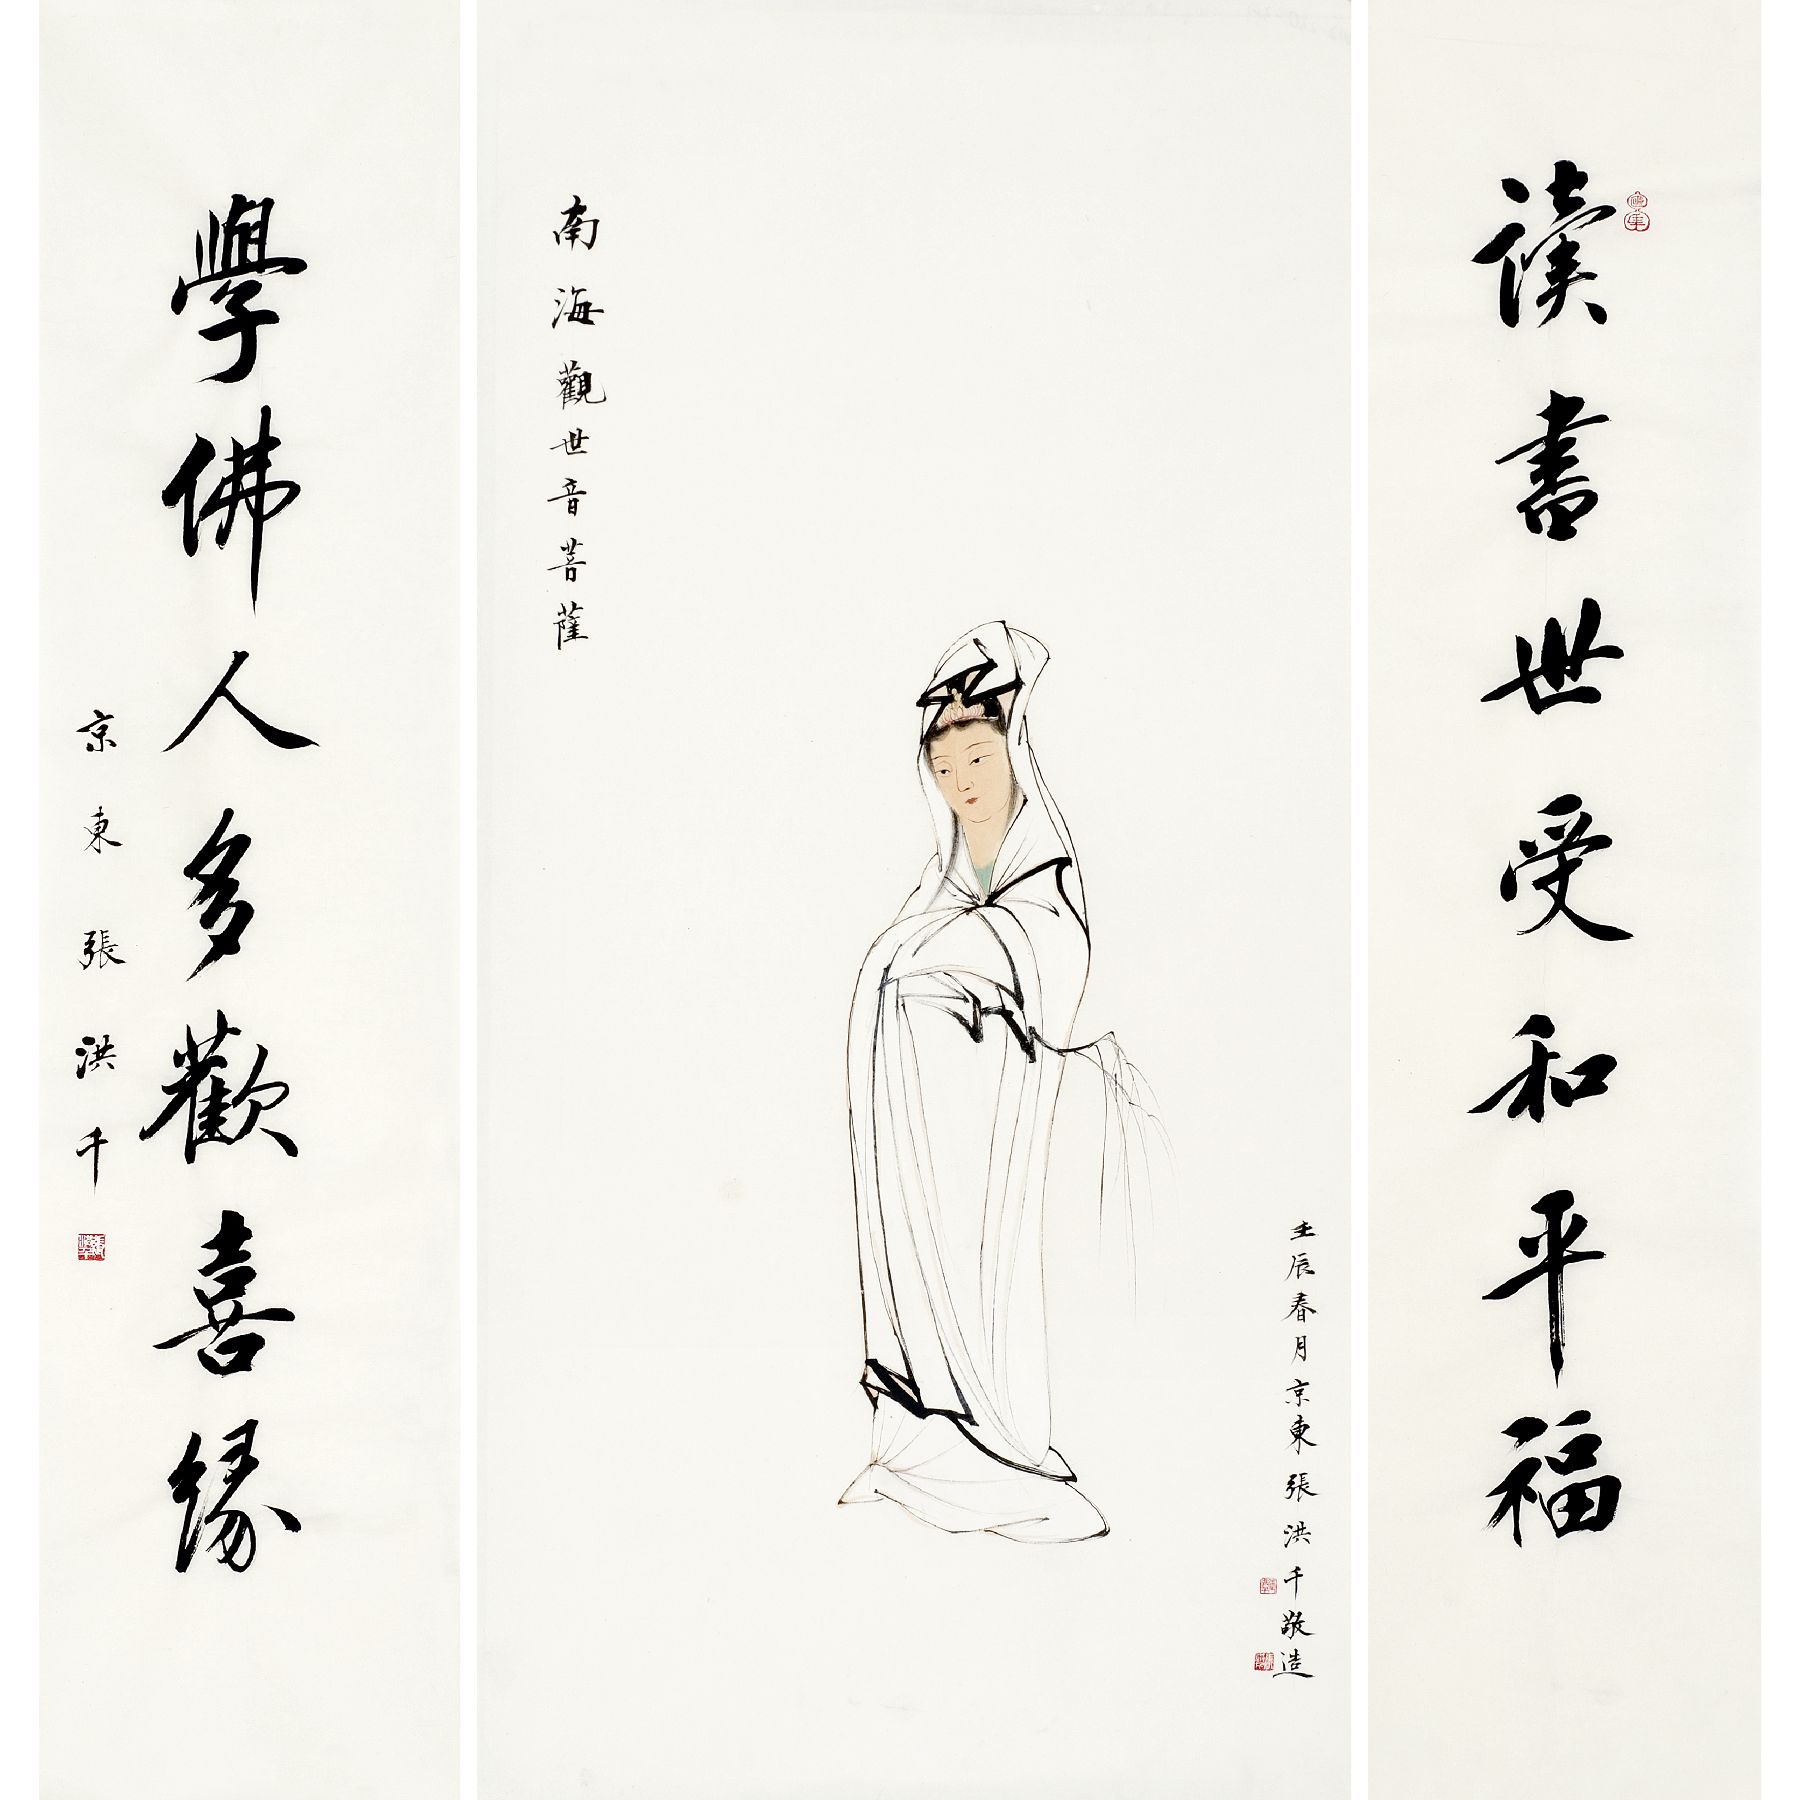 讀書世受和平福
南海觀世音菩薩
壬辰春月京東張洪千敬造
學佛人多歡喜緣
京東張洪千